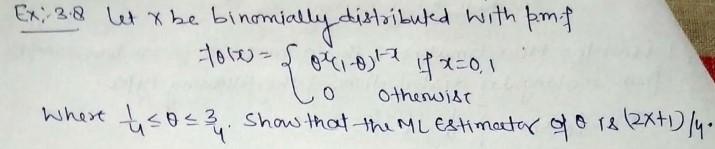 Ex:- 3.8 Let X be binomially distributed with p.m.f
fθ(x) = { θ^x(1-θ)^{1-x} if x=0,1
0 otherwise
Where 1/4 ≤ θ ≤ 3/4. Show that the ML Estimator of θ is (2X+1)/4.